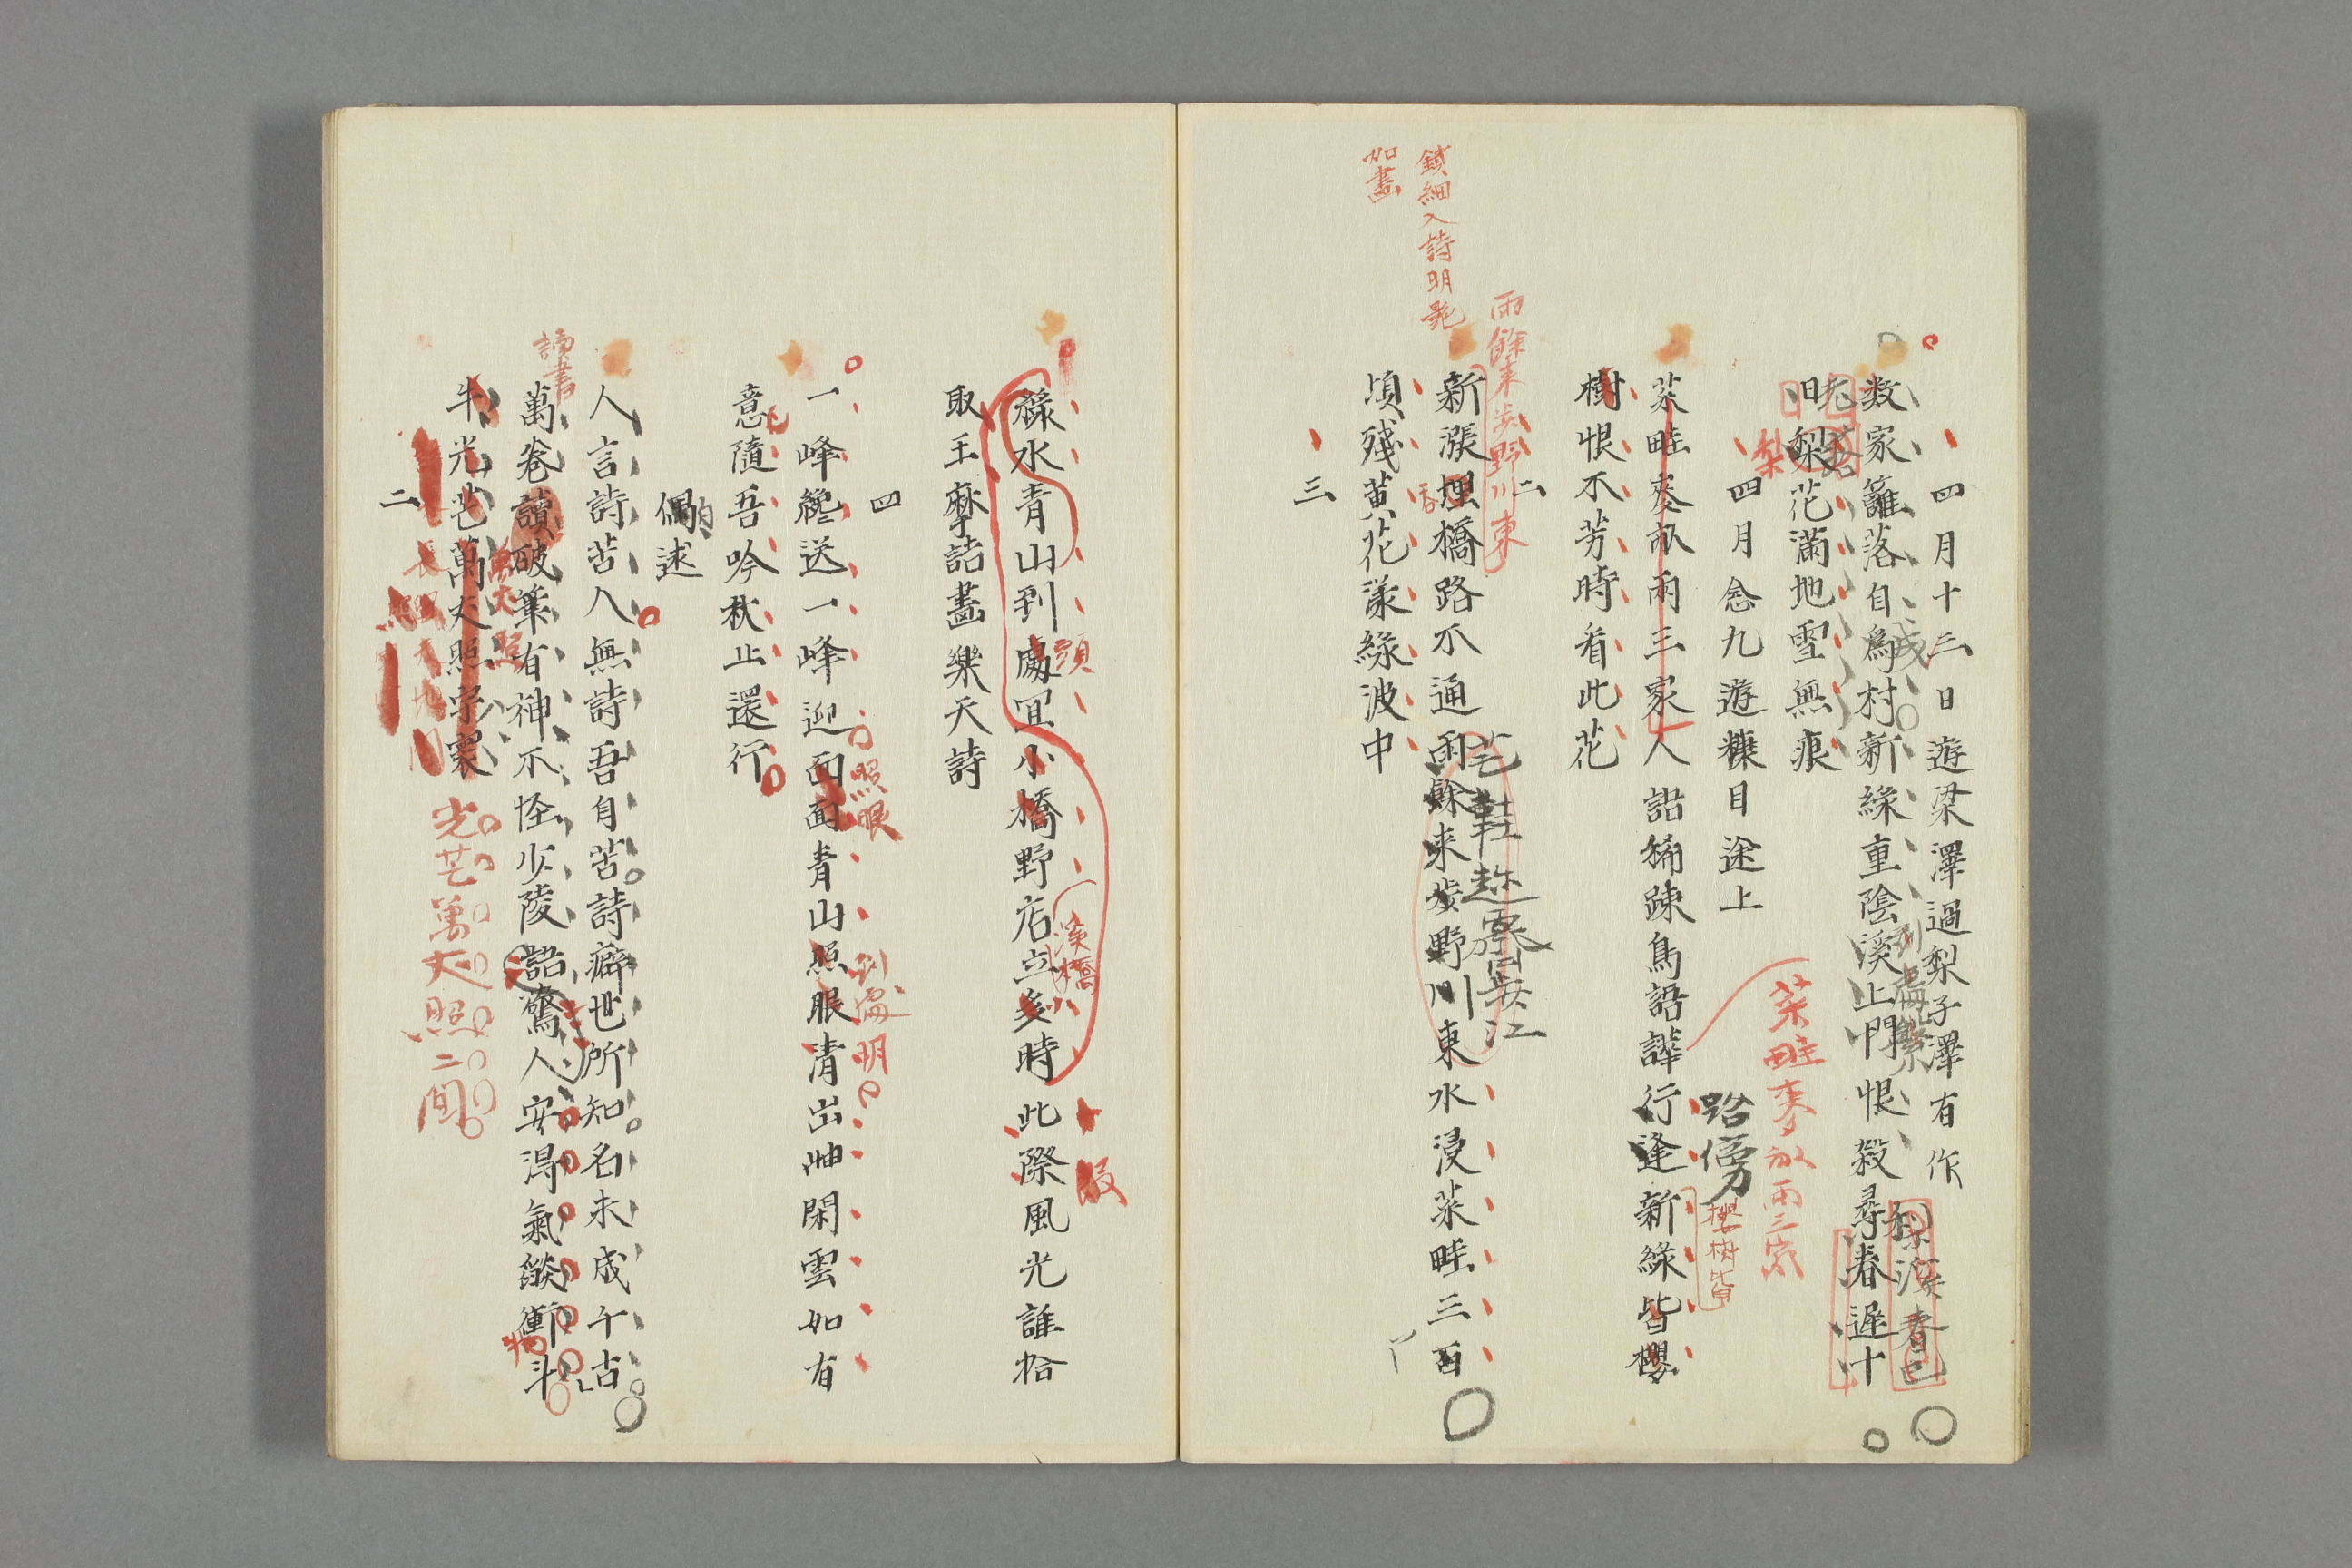 四月十二日遊梁澤過梨子澤有作
数家籬落自為村新緑重陰溪上門恨殺尋春遅十
日梨花満地雪無痕
梨溪春已
四月念九遊糠目途上
菜畦麥畝両三家
菜畦麥畝雨三家人語稀踈鳥語譁行逢新緑皆櫻
路傍
櫻樹皆
樹恨不芳時看此花
二
雨餘来歩野川東
芒鞋
新漲埋橋路不通雨餘来歩野川東水浸菜畦三百
頃殘黄花漾緑波中
鎖細入詩明艶
如畫
三
緑水青山到處冝小橋野店立多時此際風光誰拾
頭
溪橋
取王摩詰畫樂天詩
四
一峰纔送一峰迎面面青山照眼清出岫閑雲如有
照眼
到處明
意隨吾吟秋止還行
偶述
人言詩苦人無詩吾自苦詩癖世所知名未成千古
萬巻讀破筆有神不怪少陵語驚人安得氣燄衝斗
讀書
牛光芒萬丈照宇寰
萬丈照
光芒萬丈照二間
二